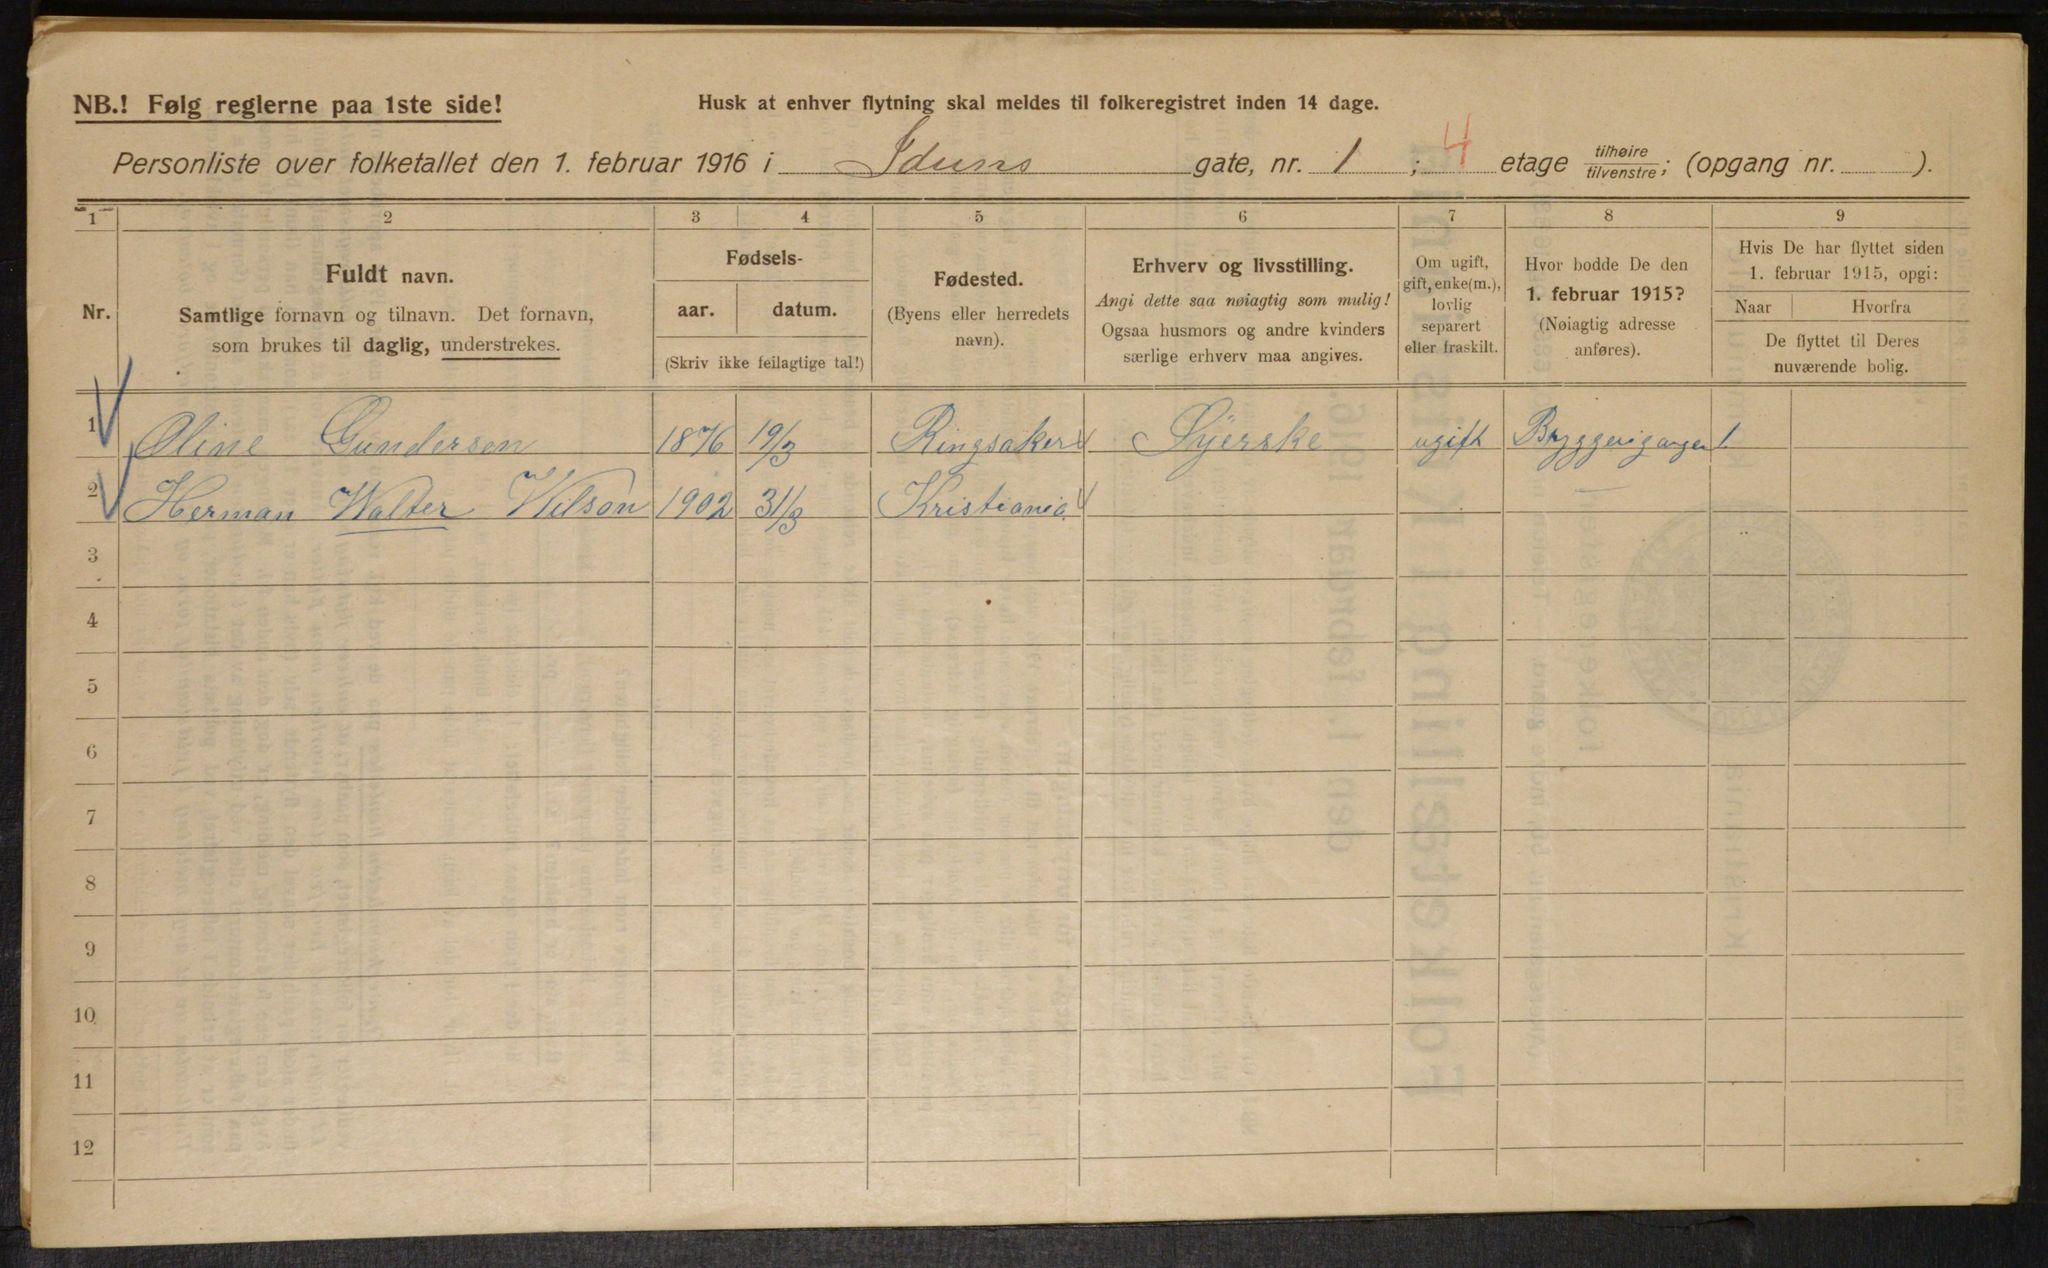 NB.! Følg reglerne paa 1ste side!
Husk at enhver flytning skal meldes til folkeregistret inden 14 dage.
Personliste over folketallet den 1. februar 1916 i Iduns gate, nr. 1 ; 4 etage tilhøire/tilvenstre; (opgang nr. ).
1 2 3 4 5 6 7 8 9
Nr.
Fuldt navn.
Samtlige fornavn og tilnavn. Det fornavn,
som brukes til daglig, understrekes.
Fødsels-
aar. datum.
(Skriv ikke feilagtige tal!)
Fødested.
(Byens eller herredets
navn).
Erhverv og livsstilling.
Angi dette saa nøiagtig som mulig!
Ogsaa husmors og andre kvinders
særlige erhverv maa angives.
Om ugift,
gift, enke(m.),
lovlig
separert
eller fraskilt.
Hvor bodde De den
1. februar 1915?
(Nøiagtig adresse
anføres).
Hvis De har flyttet siden
1. februar 1915, opgi:
Naar Hvorfra
De flyttet til Deres
nuværende bolig.
1 Oline Gundersen 1876 19/3 Ringsaker Syerske ugift Bryggerigangen 1
2 Herman Walter Wilson 1902 31/3 Kristiania
3
4
5
6
7
8
9
10
11
12